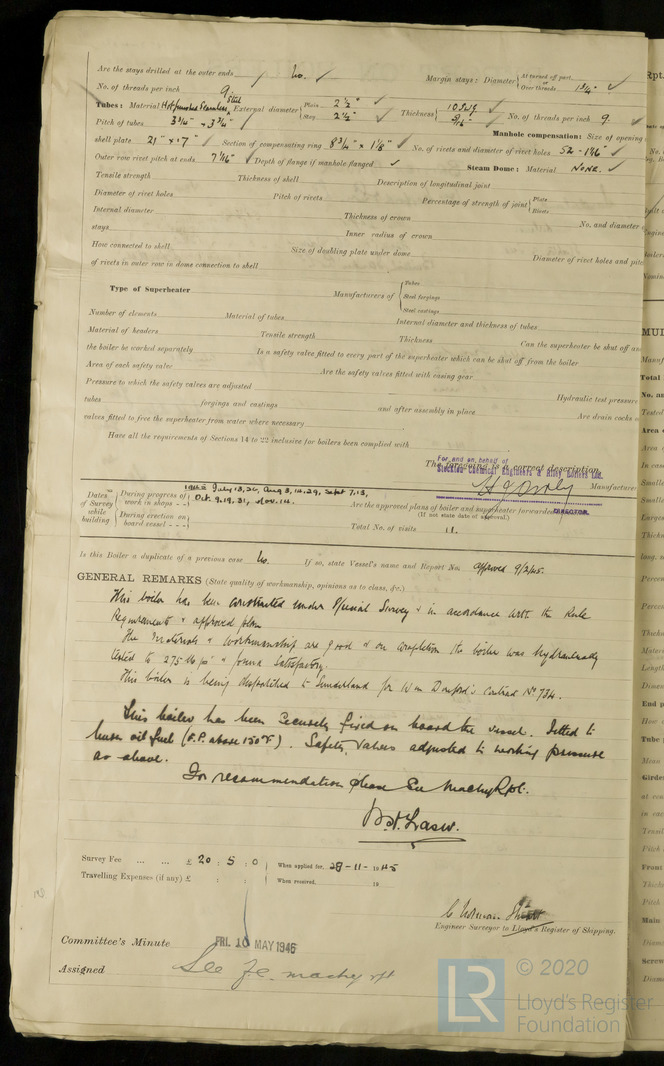 Are the stays drilled at the outer ends No. ✓ Margin stays: Diameter { At turned off part, or Over threads 1 3/4" ✓
No. of threads per inch 9
Tubes: Material Hot finished Seamless Steel External diameter { Plain 2 1/2" ✓ Stay 2 1/2" ✓ Thickness { 10 SWG 5/16" ✓ No. of threads per inch 9. ✓
Pitch of tubes 3 3/4" × 3 3/4" ✓ Manhole compensation: Size of opening
shell plate 21" × 17" ✓ Section of compensating ring 8 3/4" × 1 1/8" ✓ No. of rivets and diameter of rivet holes 52 - 1 1/16" ✓
Outer row rivet pitch at ends 7 7/16" ✓ Depth of flange if manhole flanged ✓ Steam Dome: Material NONE. ✓
Tensile strength Thickness of shell Description of longitudinal joint
Diameter of rivet holes Pitch of rivets Percentage of strength of joint { Plate Rivets
Internal diameter Thickness of crown No. and diameter
stays Inner radius of crown
How connected to shell Size of doubling plate under dome Diameter of rivet holes and pitc
of rivets in outer row in dome connection to shell
Type of Superheater Manufacturers of { Tubes Steel forgings Steel castings
Number of elements Material of tubes Internal diameter and thickness of tubes
Material of headers Tensile strength Thickness Can the superheater be shut off an
the boiler be worked separately Is a safety valve fitted to every part of the superheater which can be shut off from the boiler
Area of each safety valve Are the safety valves fitted with easing gear
Pressure to which the safety valves are adjusted Hydraulic test pressure
tubes forgings and castings and after assembly in place Are drain cocks o
valves fitted to free the superheater from water where necessary
Have all the requirements of Sections 14 to 22 inclusive for boilers been complied with
For and on behalf of
The foregoing is a correct description,
Stockton Chemical Engineers & Riley Boilers Ltd.
Manufacture
DIRECTOR.
Dates of Survey while building { During progress of work in shops - - July 13, 26, Aug 3, 14, 29, Sept 7, 13, Oct. 9, 19, 31, Nov. 14. Are the approved plans of boiler and superheater forwarded
(If not state date of approval.)
During erection on board vessel - - - Total No. of visits 11.
Is this Boiler a duplicate of a previous case No. If so, state Vessel's name and Report No. approved 9/2/45.
GENERAL REMARKS (State quality of workmanship, opinions as to class, &c.)
This boiler has been constructed under Special Survey & in accordance with the Rule
Requirements & approved plan
The Materials & Workmanship are good & on completion the boiler was hydraulically
tested to 275 lbs p" & found Satisfactory.
This boiler is being despatched to Sunderland for Wm Doxford's Contract No 734.
This boiler has been securely fixed on board the vessel. Fitted to
burn oil fuel (F.P. above 150°F). Safety Valves adjusted to working pressure
as above.
For recommendation please see Machy Rpt.
Survey Fee ... ... £ 20 : 5 : 0 When applied for, 28-11-1945
Travelling Expenses (if any) £ : : When received, 19
C Norman
Engineer Surveyor to Lloyd's Register of Shipping.
Committee's Minute FRI. 10 MAY 1946
Assigned See F.E. machy rpt
LR © 2020
Lloyd's Register
Foundation
Rpt.
MUL